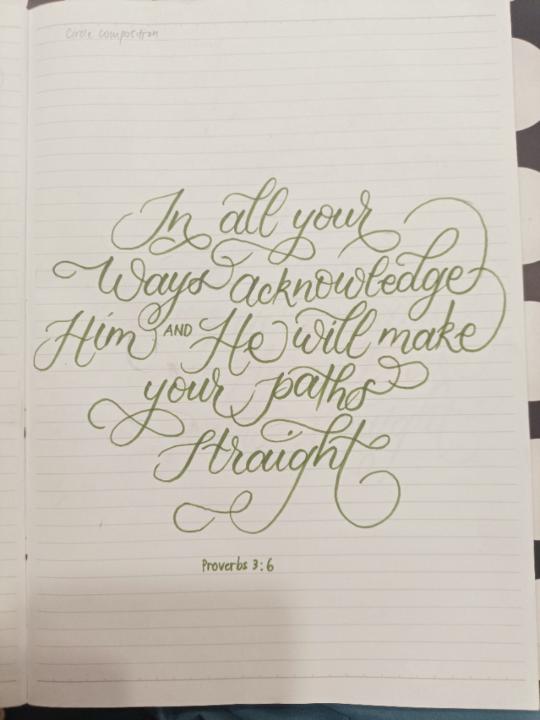 Circle Composition
In all your
Ways acknowledge
Him AND He will make
your paths
straight
Proverbs 3:6